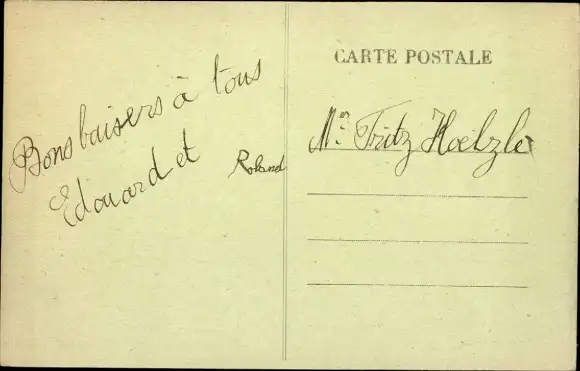 Bons baisers à tous
Edouard et
Roland
CARTE POSTALE
Mr. Fritz Hoelzle